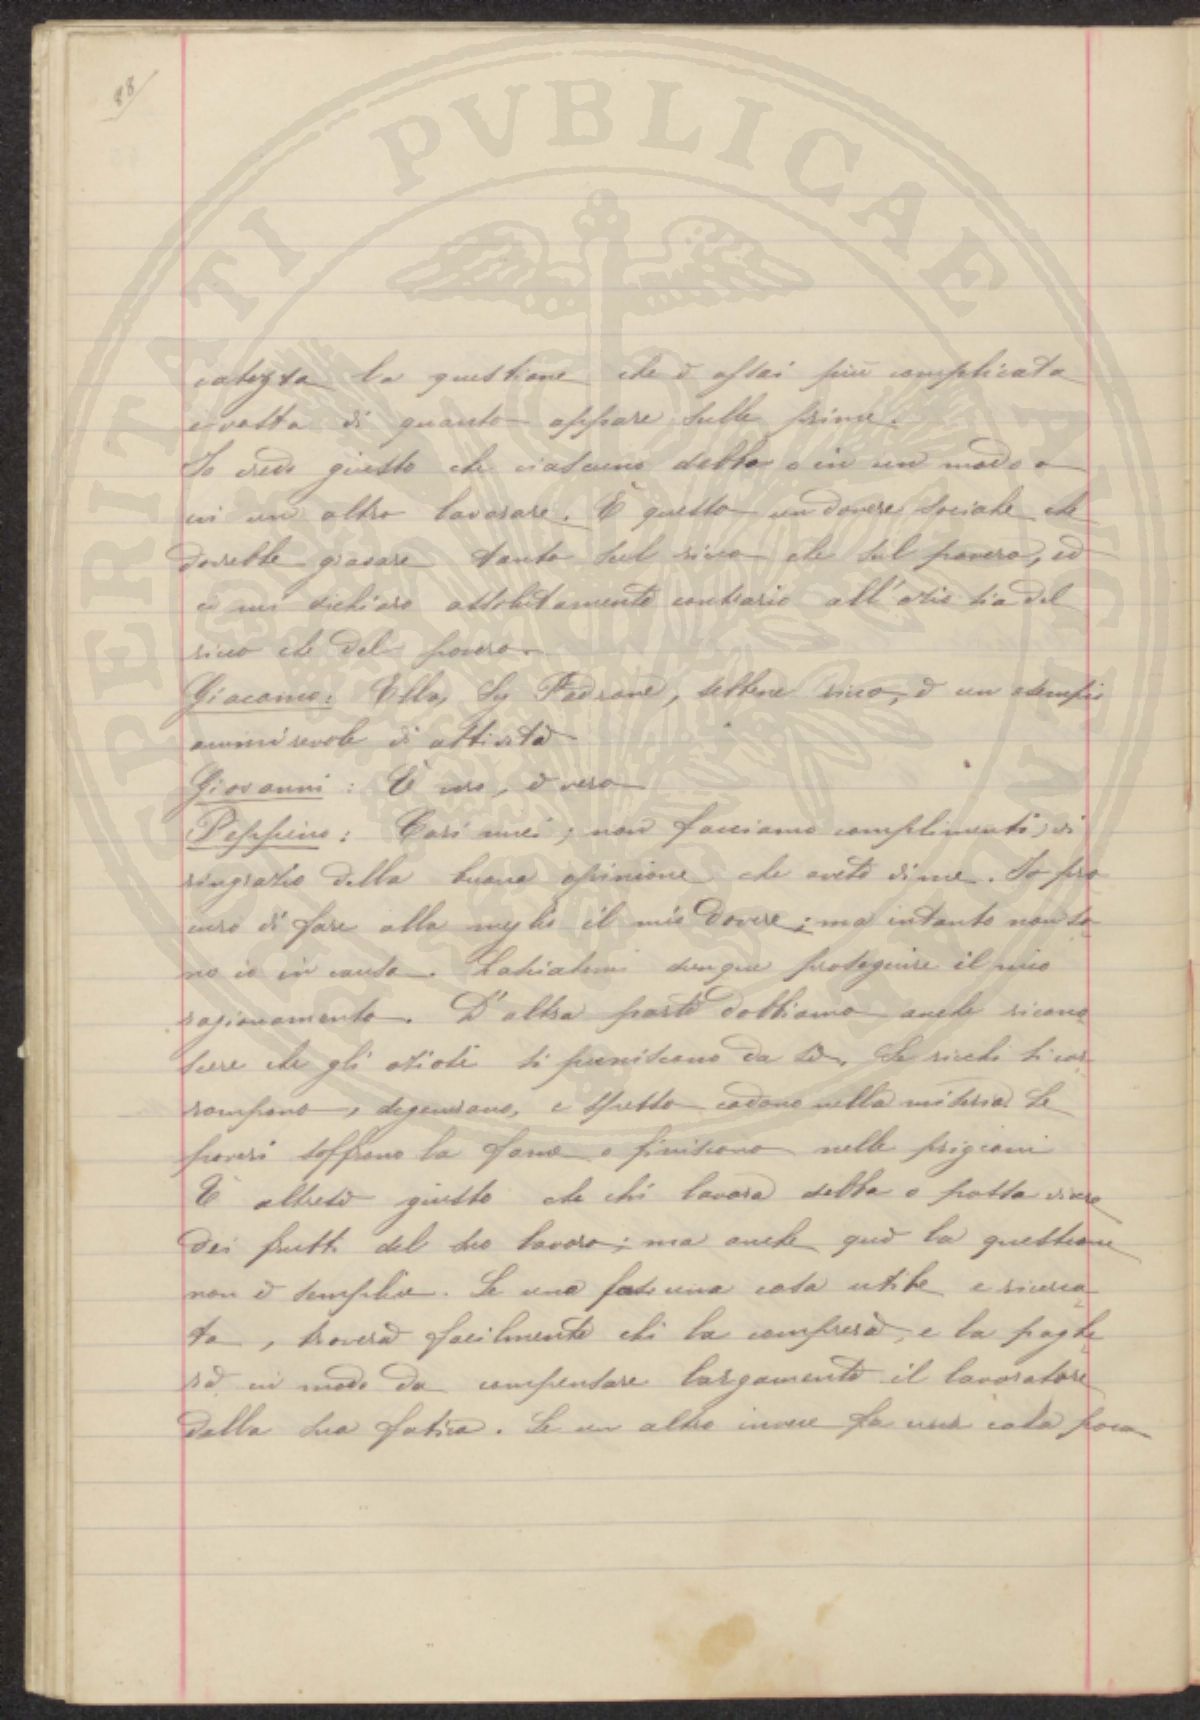 88
PROSPERITATI PVBLICAE
catezza la questione che è assai più complicata
e vasta di quanto appare sulle prime.
Io credo giusto che ciascuno debba o in un modo o
in un altro lavorare. È questo un dovere sociale che
dovrebbe gravare tanto sul ricco che sul povero, ed
io mi dichiaro assolutamente contrario all'ozio sia del
ricco che del povero.
Giacomo: Ella, Sig Padrone, sebbene ricco, è un esempio
ammirevole di attività
Giovanni: È vero, è vero
Peppino: Cari miei, non facciamo complimenti; vi
ringrazio della buona opinione che avete di me. Io pro
curo di fare alla meglio il mio dovere; ma intanto non so
no io in causa. Lasciatemi dunque proseguire il mio
ragionamento. D'altra parte dobbiamo anche ricono
scere che gli oziosi si puniscono da sè. Se ricchi si cor
rompono, degenerano, e spesso cadono nella miseria. Se
poveri soffrono la fame o finiscono nelle prigioni
È altresì giusto che chi lavora debba o possa vivere
dei frutti del suo lavoro; ma anche quì la questione
non è semplice. Se uno fa una cosa utile e ricerca
ta, troverà facilmente chi la comprerà, e la paghe
rà in modo da compensare largamente il lavoratore
della sua fatica. Se un altro invece fa una cosa poco